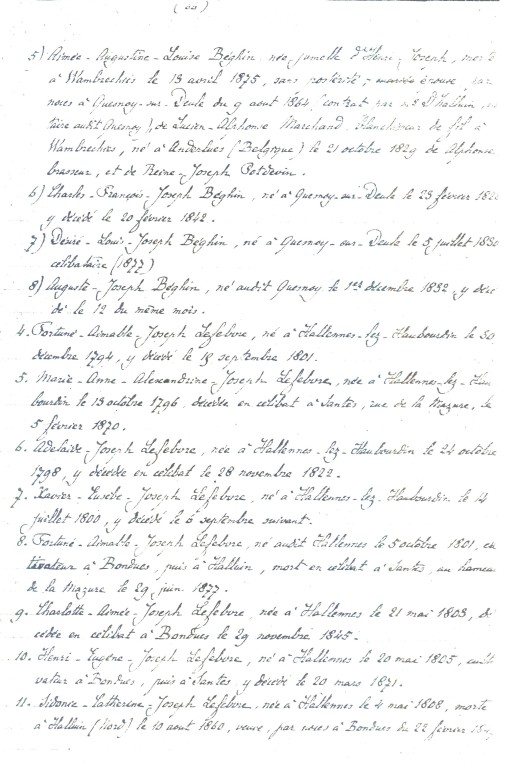 5) Aimée - Augustine - Louise Béghin, née jumelle d'Henri - Joseph, morte
à Wambrechies le 13 avril 1875, sans postérité, épouse par
noces à Quesnoy-sur-Deule du 9 aout 1864, (contrat par Me D'Halluin, no
taire audit Quesnoy), de Lucien-Alphonse Marchand, blanchisseur de fil à
Wambrechies, né à Anderlues (Belgique) le 21 octobre 1829 de Alphonse
brasseur, et de Reine-Joseph Potdevin.
6) Charles - François - Joseph Béghin, né à Quesnoy-sur-Deule le 23 février
y décédé le 20 février 1842.
7) Désiré - Louis - Joseph Béghin, né à Quesnoy-sur-Deule le 5 juillet 1830
célibataire (1877)
8) Auguste - Joseph Béghin, né audit Quesnoy le 1er décembre 1832, y décé
dé le 12 du même mois.
4. Fortuné - Aimable - Joseph Lefebvre, né à Hallennes-lez-Haubourdin le 30
décembre 1794, y décédé le 18 septembre 1801.
5. Marie - Anne - Alexandrine - Joseph Lefebvre, née à Hallennes-lez-Hau
bourdin le 13 octobre 1796, décédée en célibat à Santes, rue de la Mazure, le
5 février 1870.
6. Adelaïde - Joseph Lefebvre, née à Hallennes-lez-Haubourdin le 24 octobre
1798, y décédée en célibat le 28 novembre 1822.
7. Xavier - Eusèbe - Joseph Lefebvre, né à Hallennes-lez-Haubourdin le 14
juillet 1800, y décédé le 6 septembre suivant.
8. Fortuné - Aimable - Joseph Lefebvre, né audit Hallennes le 5 octobre 1801, cu
tivateur à Bondues, puis à Halluin, mort en célibat à Santes, au hameau
de la Mazure le 29 juin 1877.
9. Charlotte - Aimée - Joseph Lefebvre, née à Hallennes le 21 mai 1803, dé
cédée en célibat à Bondues le 29 novembre 1845.
10. Henri - Eugène - Joseph Lefebvre, né à Hallennes le 20 mai 1805, culti
vateur à Bondues, puis à Santes y décédé le 20 mars 1871.
11. Sidonie - Catherine - Joseph Lefebvre, née à Hallennes le 4 mai 1808, morte
à Halluin (Nord) le 10 aout 1860, veuve, par noces à Bondues du 22 février